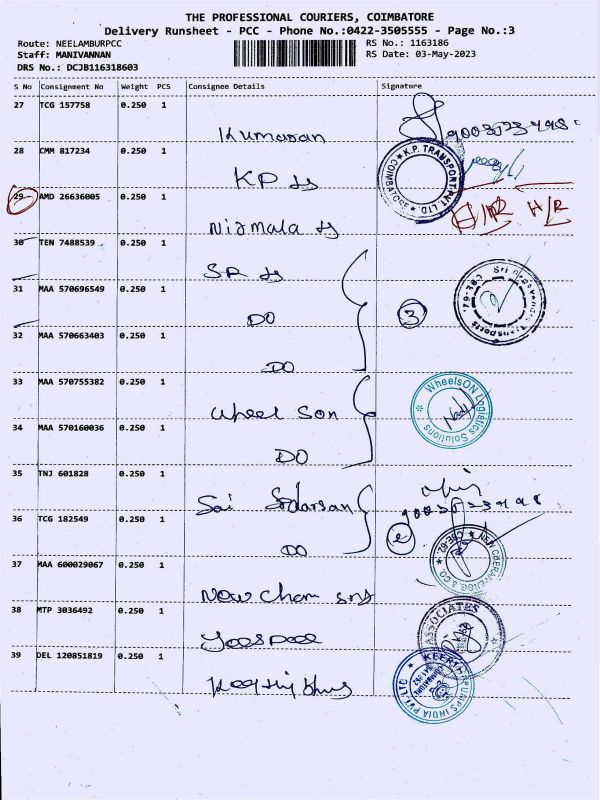 THE PROFESSIONAL COURIERS, COIMBATORE
Delivery Runsheet - PCC - Phone No.:0422-3505555 - Page No.:3
Route: NEELAMBURPCC RS No.: 1163186
Staff: MANIVANNAN RS Date: 03-May-2023
DRS No.: DCJB116318603
S No Consignment No Weight PCS Consignee Details Signature
27 TCG 157758 0.250 1
Kumaran
28 CMM 817234 0.250 1
KP
K.P. TRANSPORT PVT. LTD COIMBATORE
29 AMD 26636005 0.250 1
Nirmala
30 TEN 7488539 0.250 1
SR
31 MAA 570696549 0.250 1
DO 3
32 MAA 570663403 0.250 1
DO
33 MAA 570755382 0.250 1
Wheel Son WheelsON Logistics Solutions
34 MAA 570160036 0.250 1
DO
35 TNJ 601828 0.250 1
Sai
36 TCG 182549 0.250 1
DO
37 MAA 600029067 0.250 1
38 MTP 3036492 0.250 1
ASSOCIATES
39 DEL 120851819 0.250 1
PUMPS INDIA PVT LTD